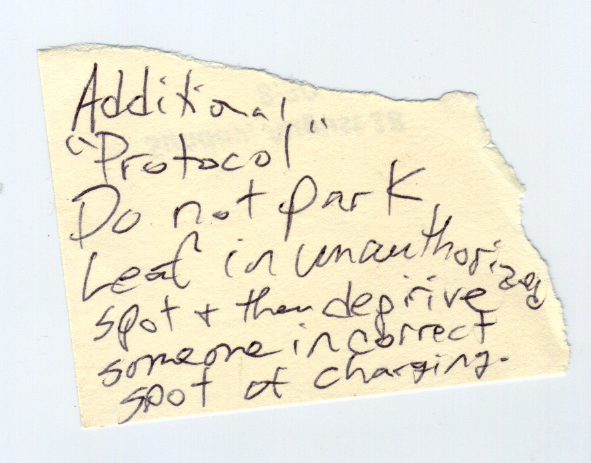 Additional
"Protocol"
Do not park
Leaf in unauthorized
spot + then deprive
someone in correct
spot of charging.